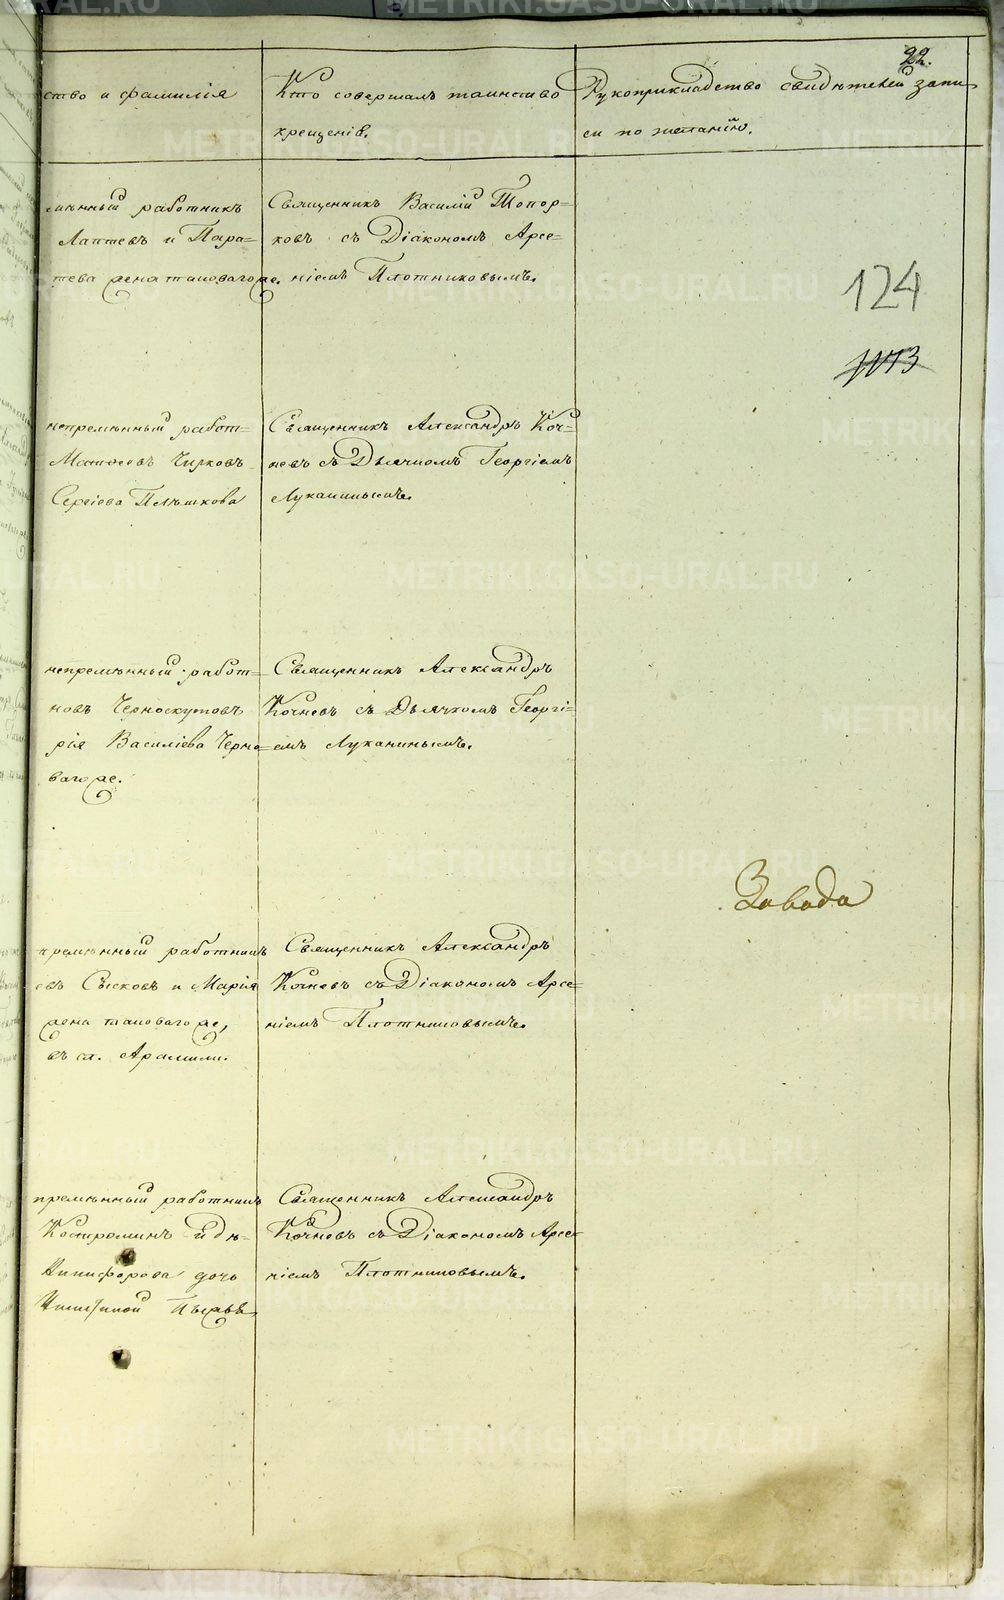 22.
ство и фамилія
Кто совершалъ таинство
крещенія.
Рукоприкладство свидѣтелей запи-
си по желанію.
мѣнный работникъ
Лаптевъ и Пара-
тева жена таковаго же.
Священникъ Василій Топор-
ковъ съ Діакономъ Арсе-
ніемъ Плотниковымъ.
124
1113
непремѣнный работ-
Матѳеевъ Чирковъ
Сергіева Плѣшкова
Священникъ Александръ Коч-
невъ съ Дьячкомъ Георгіемъ
Луканинымъ.
непремѣнный работ-
новъ Черноскутовъ
рія Василіева Черно-
ваго же.
Священникъ Александръ
Кочневъ съ Дьячкомъ Георгі-
емъ Луканинымъ.
Завода
премѣнный работникъ
евъ Сысковъ и Марія
жена таковаго же,
въ сл. Арамили.
Священникъ Александръ
Кочневъ съ Діакономъ Арсе-
ніемъ Плотниковымъ.
премѣнный работникъ
Костроминъ и дѣ-
Никифорова дочь
Священникъ Александръ
Кочневъ съ Діакономъ Арсе-
ніемъ Плотниковымъ.
METRIKI.GASO-URAL.RU